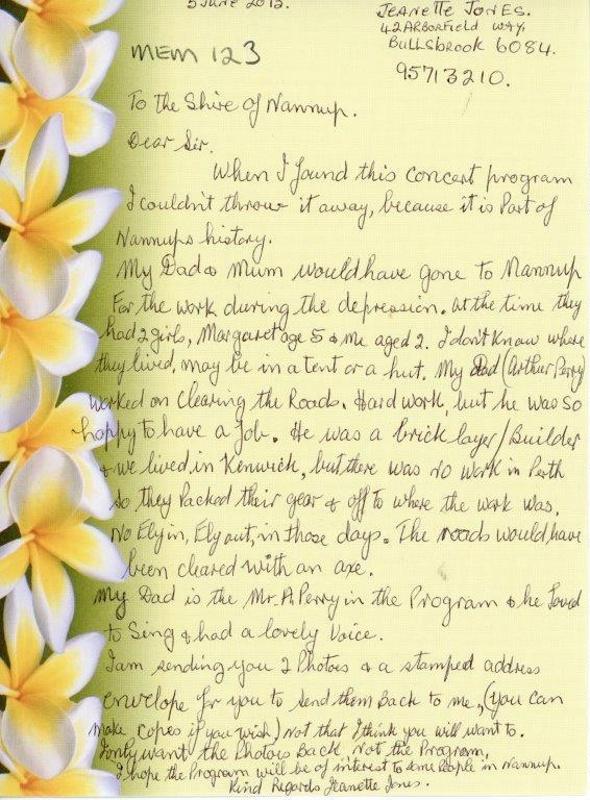 5 June 2013.
Jeanette Jones.
42 Arborfield Way,
Bullsbrook 6084.
95713210.
MEM 123
To the Shire of Nannup.
Dear Sir.
When I found this concert program
I couldn't throw it away, because it is Part of
Nannups history.
My Dad & Mum would have gone to Nannup
For the work during the depression. at the time they
had 2 girls, Margaret age 5 & me aged 2. I don't know where
they lived, may be in a tent or a hut. My Dad (Arthur Perry)
worked on clearing the Roads. Hard work, but he was so
happy to have a Job. He was a brick layer/Builder
& we lived in Kenwick, but there was no work in Perth
so they Packed their gear & off to where the work was.
No Ely in, Ely out, in those days. The roads would have
been cleared with an axe.
My Dad is the Mr. A. Perry in the Program & he Loved
to Sing & had a lovely Voice.
I am sending you 2 Photos & a stamped address
envelope for you to send them Back to me, (you can
make copes if you wish) not that I think you will want to.
I only want the Photos Back not the Program,
I hope the Program will be of interest to some People in Nannup.
Kind Regards Jeanette Jones.